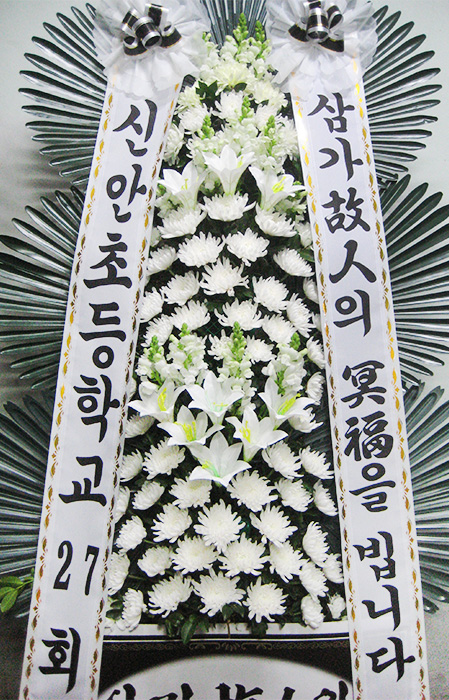 신안초등학교 27회
삼가 故人의 冥福을 빕니다